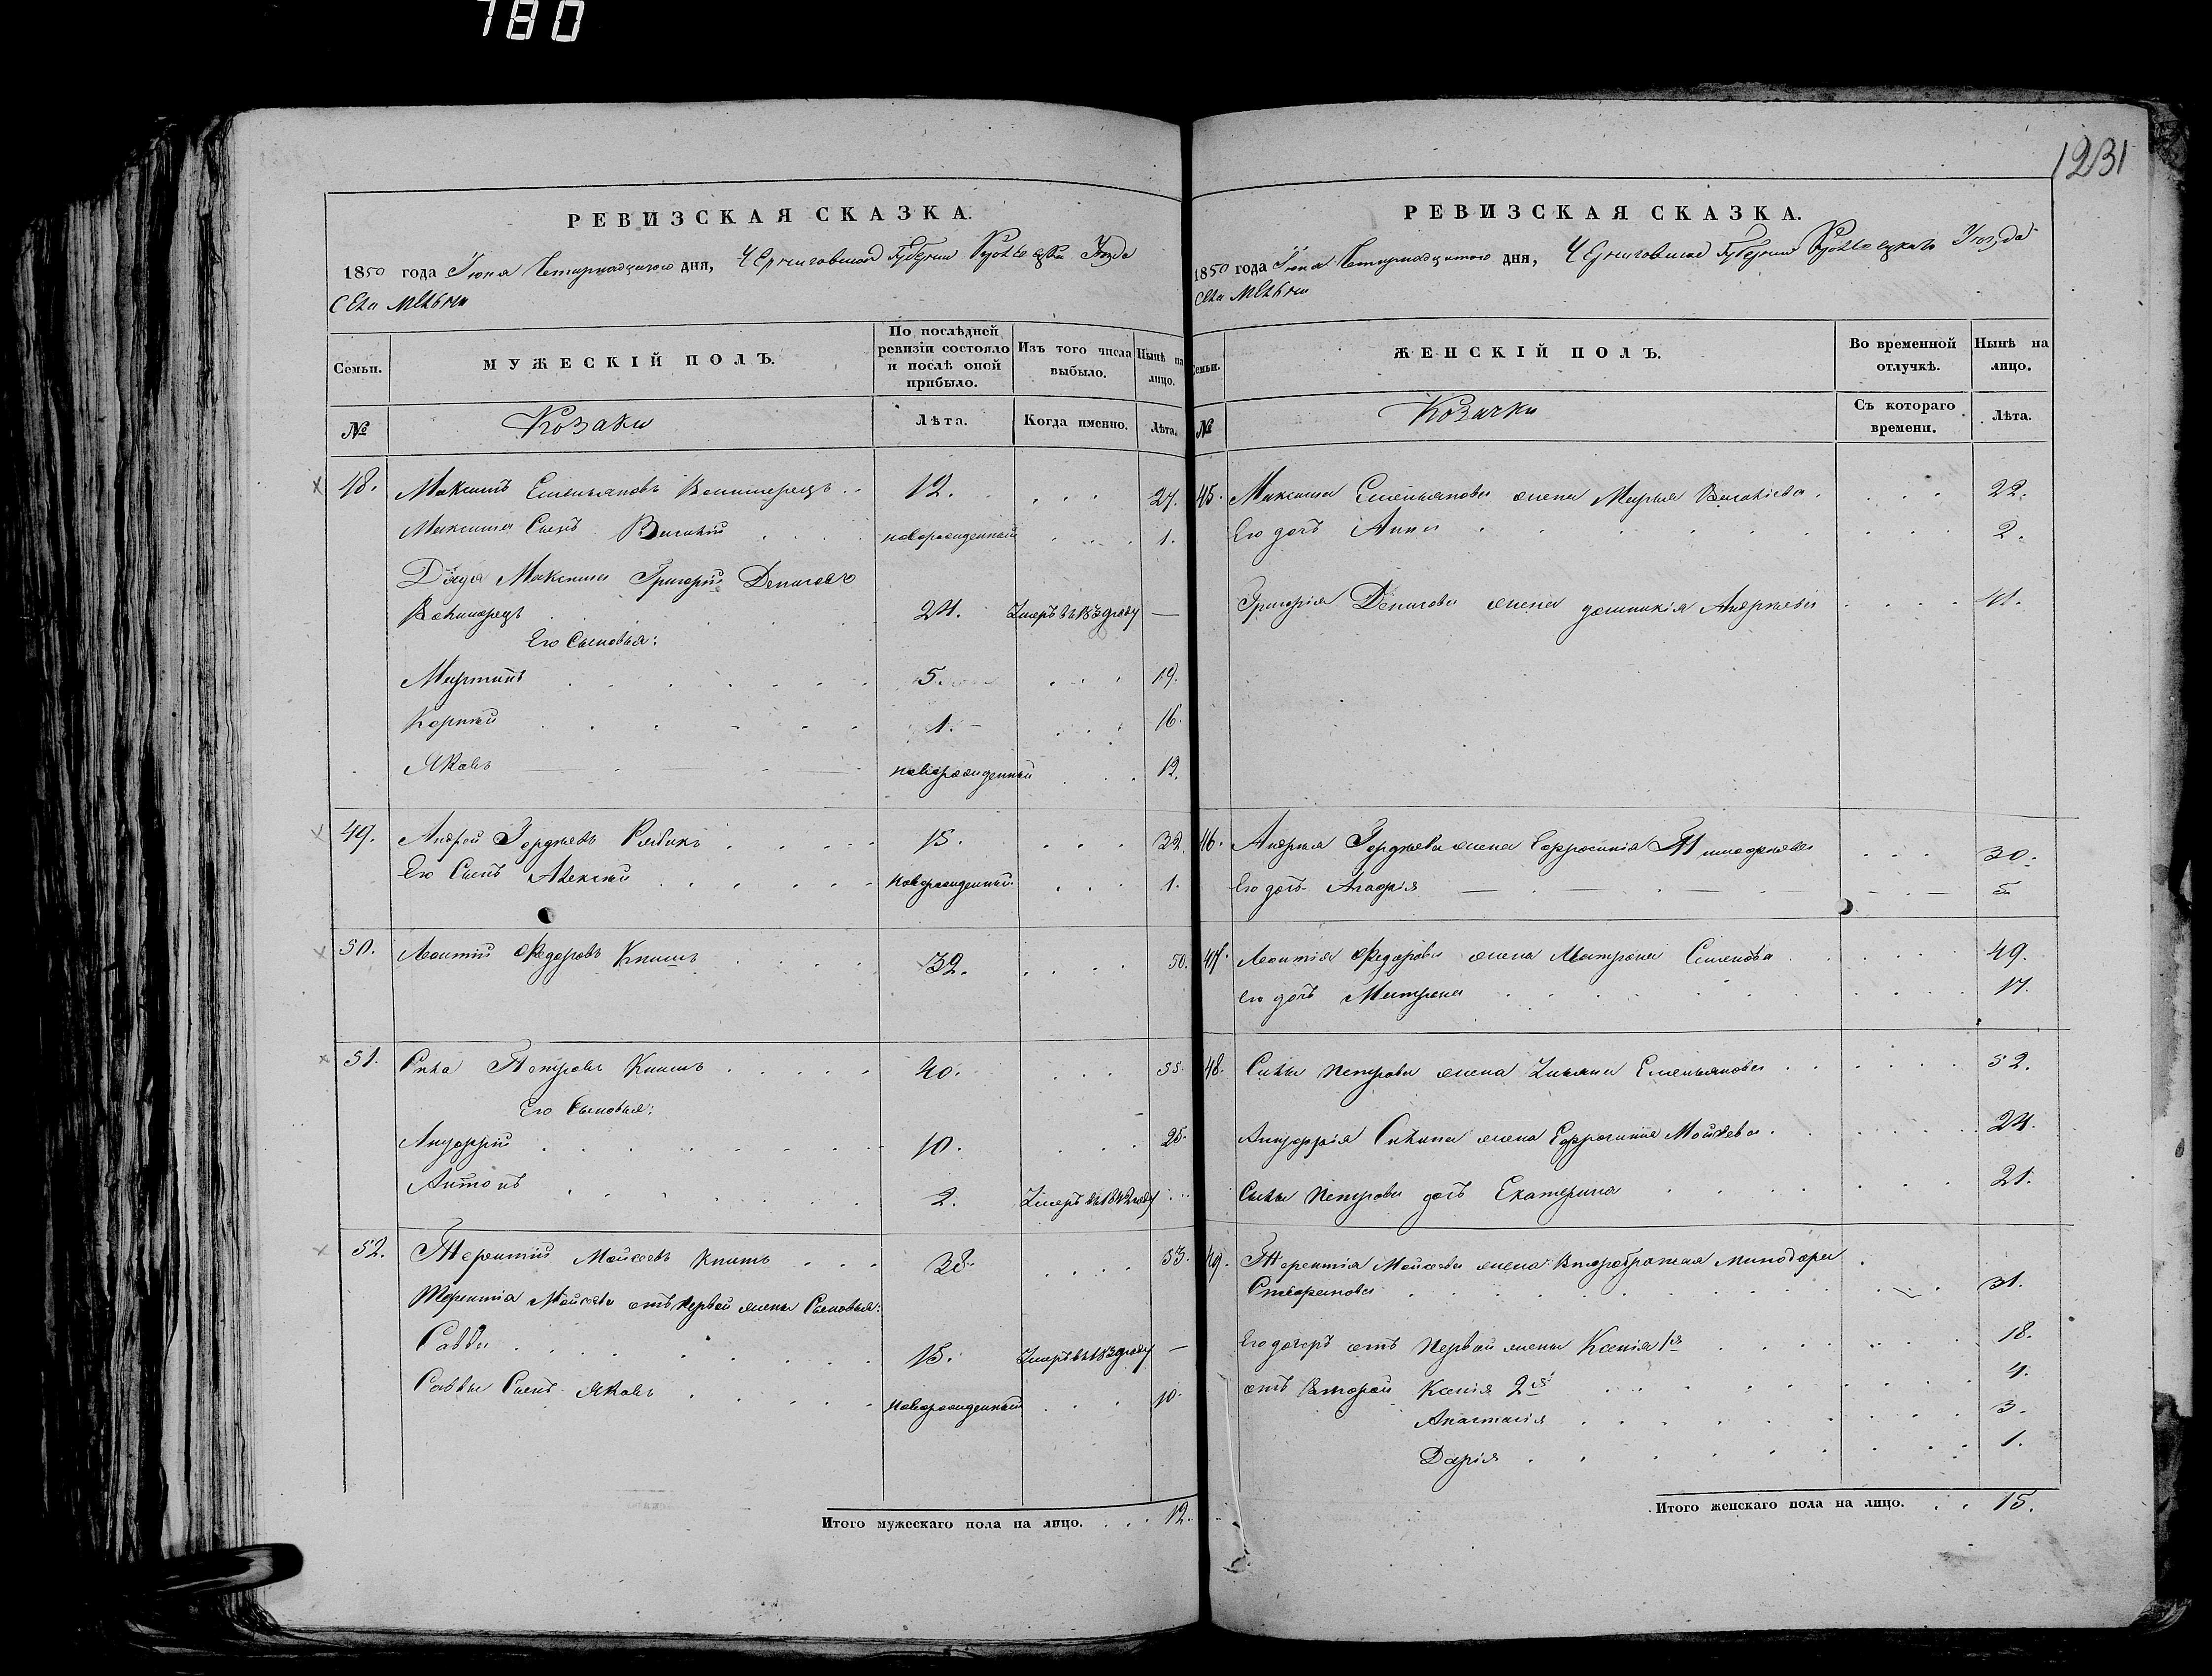 780
1231
РЕВИЗСКАЯ СКАЗКА.
1850 года Іюня Четырнадцатого дня, Черниговской Губернии Уезда
Села Мельни
Семьи. МУЖЕСКІЙ ПОЛЪ. По послѣдней ревизіи состояло и послѣ оной прибыло. Изъ того числа выбыло. Нынѣ на лицо.
№ Козаки Лѣта. Когда именно. Лѣта.
48. Максимъ Емельяновъ 12. 27.
Максима Сынъ Василій новорожденный 1.
Дядя Максима Григорій Денисовъ
24. Умеръ въ 1839 году —
Его Сыновья:
Мартинъ 5. 19.
Корнѣй 1. 16.
Яковъ новорожденный 12.
49. Андрей Гордѣевъ Рябикъ 15. 32.
Его Сынъ Алексѣй новорожденный 1.
50. Леонтій Федоровъ Книшъ 32. 50.
51. Сила Петровъ Книшъ 40. 55.
Его Сыновья:
10. 25.
Антонъ 2. Умеръ въ 1842 году
52. Терентій Мойсеевъ Книшъ 38. 53.
Терентія Мойсеева отъ первой жены Сыновья:
Савва 15. Умеръ въ 1839 году —
Саввы Сынъ Яковъ новорожденный 10.
Итого мужескаго пола на лицо. 12.
РЕВИЗСКАЯ СКАЗКА.
1850 года Іюня Четырнадцатого дня, Черниговской Губернии Уезда
Села Мельни
Семьи. ЖЕНСКІЙ ПОЛЪ. Во временной отлучкѣ. Нынѣ на лицо.
№ Козачки Съ котораго времени. Лѣта.
45. Максима Емельянова жена Марья Васильева 22.
Его дочь Анна 2.
Григорія Денисова жена Домникія Андреева 41.
46. Андрея Гордѣева жена Ефросинія 30.
Его дочь Агафія 5
47. Леонтія Федорова жена Матрона Семенова 49.
Его дочь Матрона 17.
48. Силы Петрова жена Ульяна Емельянова 52.
Силина жена Ефросинія Мойсеева 24.
Силы Петрова дочь Екатерина 21.
49. Терентія Мойсеева жена Второбрачная Минодора
31.
Его дочерь отъ первой жены Ксенія 1я 18.
отъ второй Ксенія 2я 4.
Анастасія 3.
Дарія 1.
Итого женскаго пола на лицо. 15.